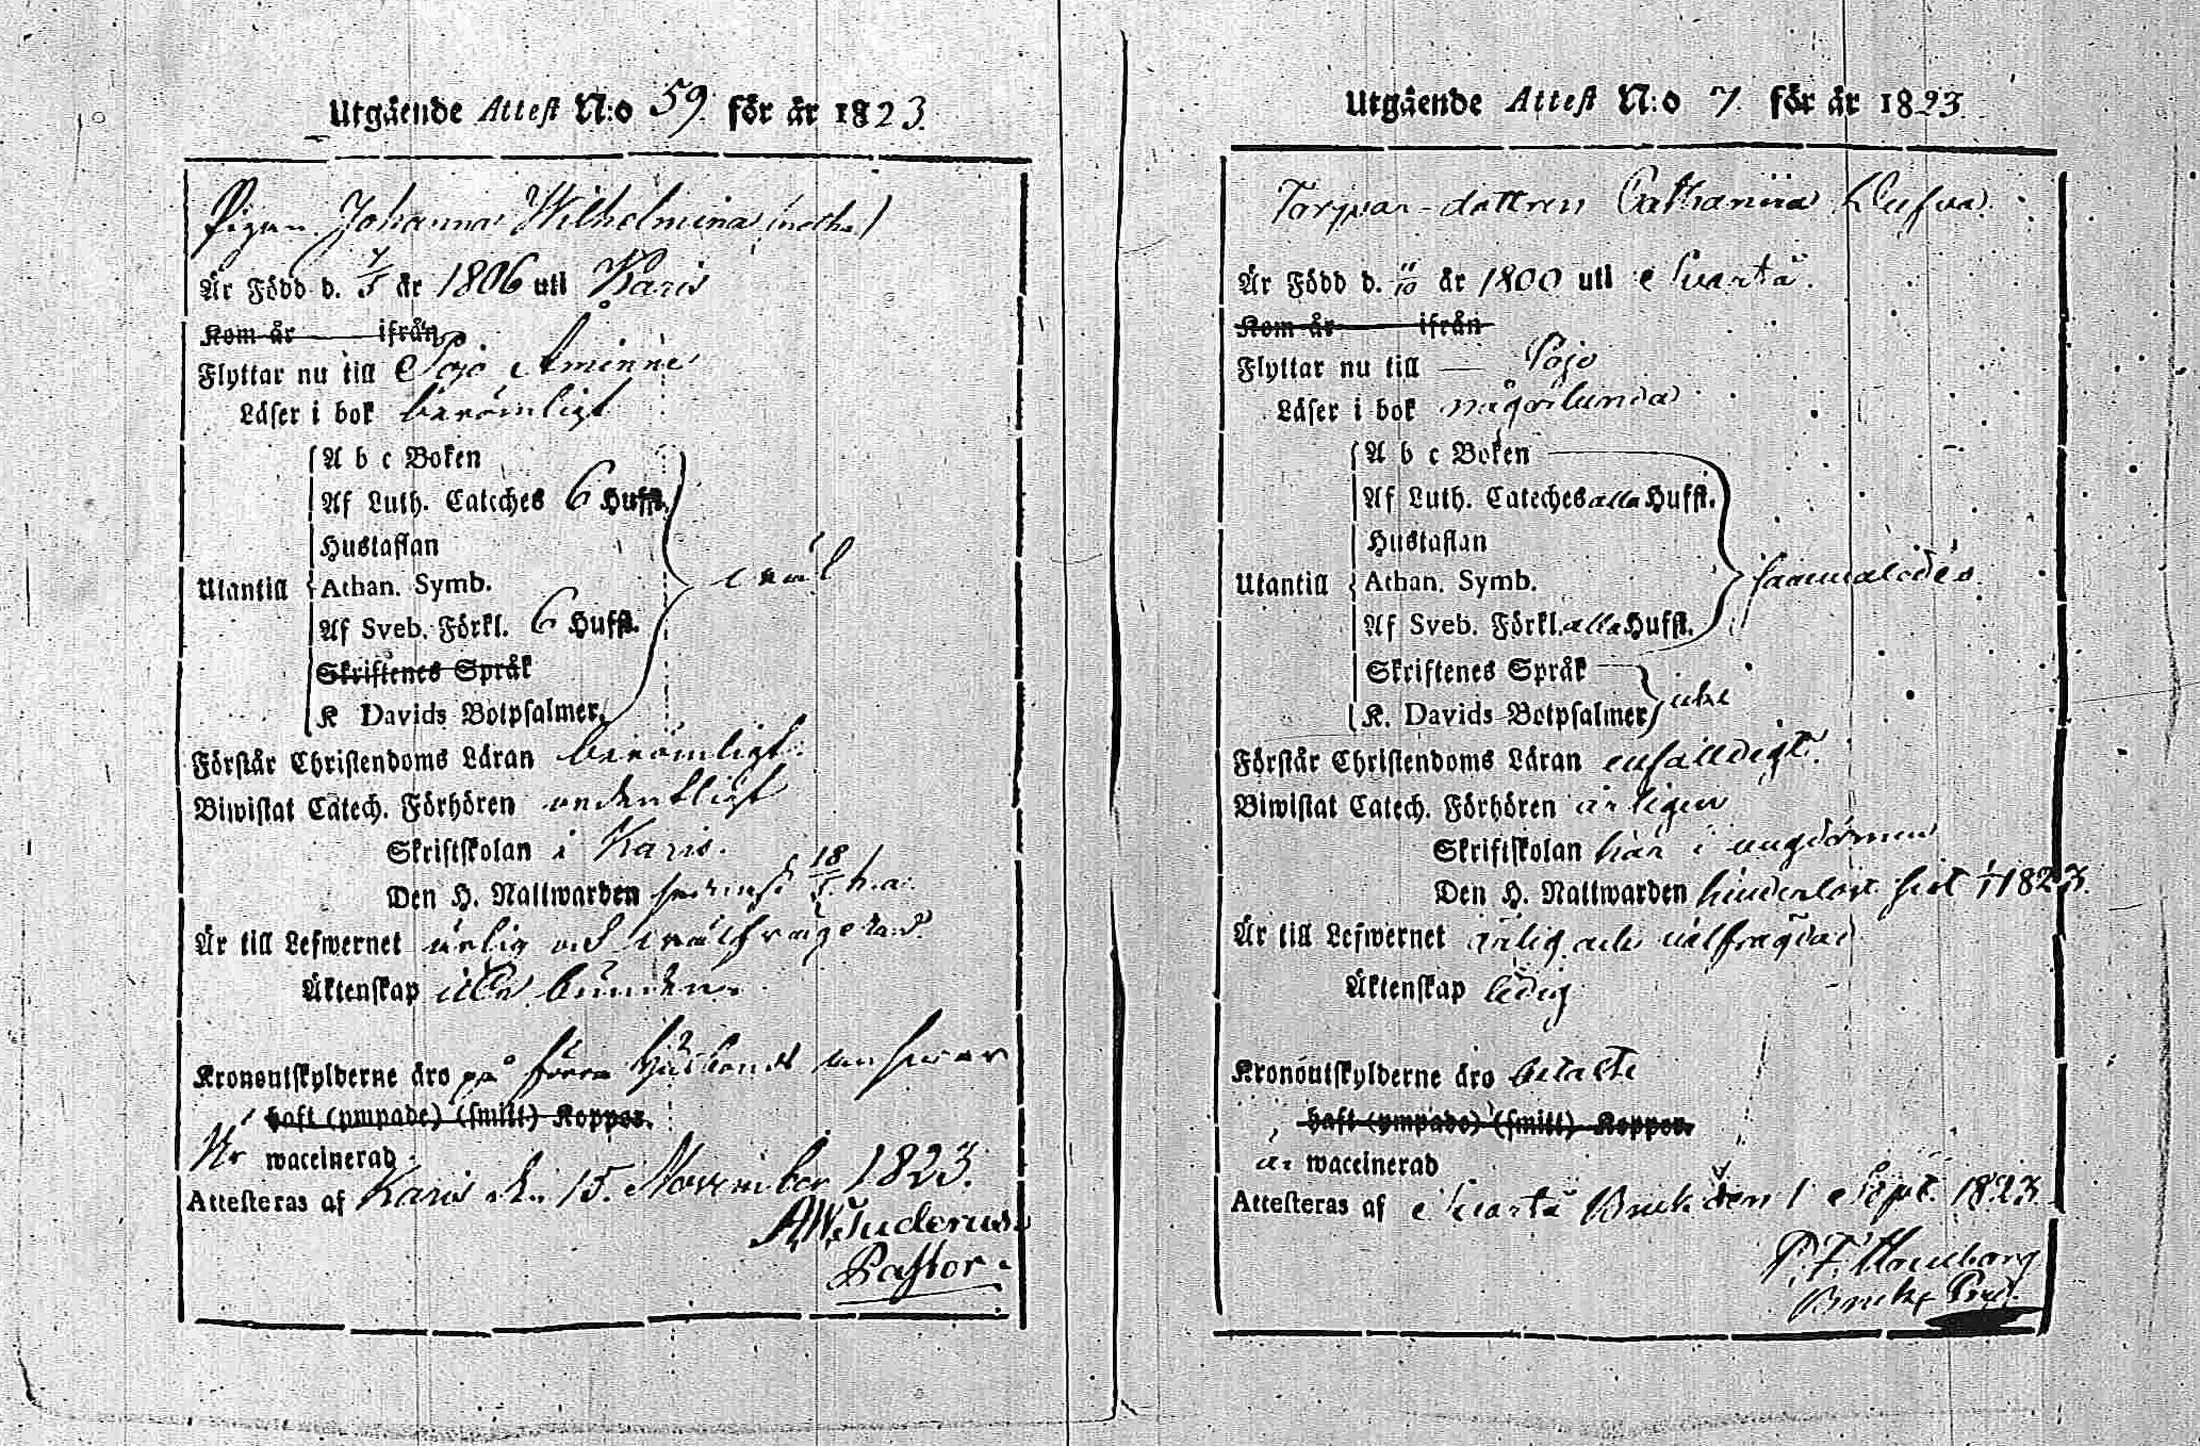 Utgående Attest N:o 59. för år 1823.
Pigan Johanna Wilhelmina
Är Född d. 7/5 år 1806 uti Karis
Kom år ifrån
Flyttar nu till Pojo Åminne
Läser i bok berömligt
A b c Boken
Af Luth. Cateches 6 Hufst.
Hustaflan
Utantill Athan. Symb. wäl
Af Sveb. Förkl. 6 Hufst.
Skriftenes Språk
K Davids Botpsalmer.
Förstår Christendoms Läran berömligt.
Biwistat Catech. Förhören ordentligt
Skriftskolan i Karis.
Den H. Nattwarden senast 18/5 h.a.
Är till Lefwernet ärlig och wälfrägdad.
Äktenskap icke bunden.
Kronoutskylderne äro på förra Husbonds answar
haft (ympade) (smitt) Koppor.
Är waccinerad
Attesteras af Karis den 15. November 1823.
A.W. Tuderus.
Pastor.
Utgående Attest N:o 7. för år 1823.
Torpar-dottren Catharina Dufva.
Är Född d. 11/10 år 1800 uti Svartå.
Kom år ifrån
Flyttar nu till Pojo
Läser i bok någorlunda
A b c Boken
Af Luth. Cateches alla Hufst.
Hustaflan
Utantill Athan. Symb. sammaledes
Af Sveb. Förkl. alla Hufst.
Skriftenes Språk
K. Davids Botpsalmer icke
Förstår Christendoms Läran enfalldigt.
Biwistat Catech. Förhören årligen
Skriftskolan här i ungdomen
Den H. Nattwarden hinderlöst sist 1/1 1823.
Är till Lefwernet ärlig och välfrägdad
Äktenskap ledig
Kronoutskylderne äro betalte
haft (ympade) (smitt) Koppor.
är waccinerad
Attesteras af Svartå Bruk den 1 Sept. 1823.
P. F.
Bruks Pred.